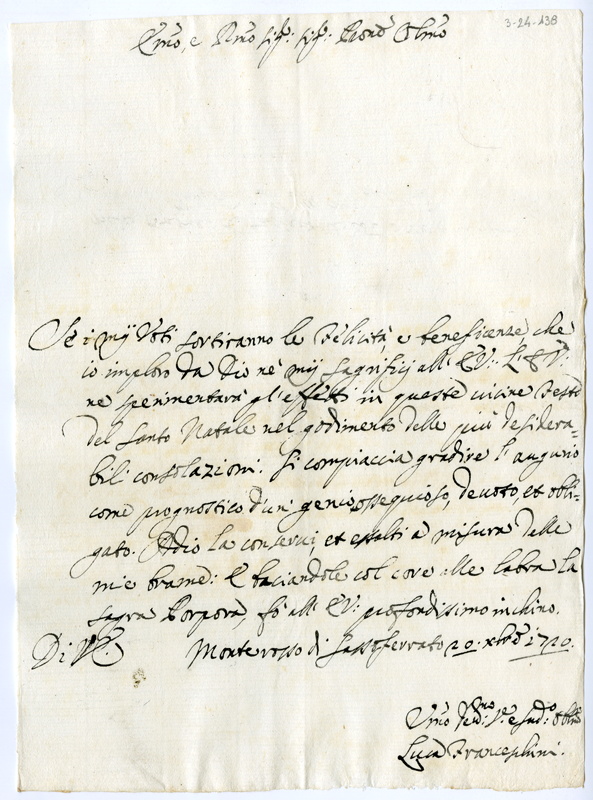 3-24-138
Em̃o, e Rm̃o Sig:r Sig:r Pron̄e Olmo
Se i mij Voti sortiranno le felicità, e beneficenze che
io imploro da Dio ne' mij sagrificj all' E.V: L'E.V:
ne sperimentarà gl'effetti in queste vicine Feste
del Santo Natale nel godimento delle più desidera-
bili consolazioni. Si compiaccia gradire l'augurio
come prognostico d'un' genio ossequioso, devoto, et obli-
gato. Iddio la conservi, et esalti à misura delle
mie brame: E baciandole col core alle labra la
sagra Porpora, fò all' E.V: profondissimo inchino.
Di V.E. Monterosso di Sassoferrato 20: xbre 1720.
Um̃o Dev:mo Se:e e Sud:o Obl:mo
Luca Franceschini.